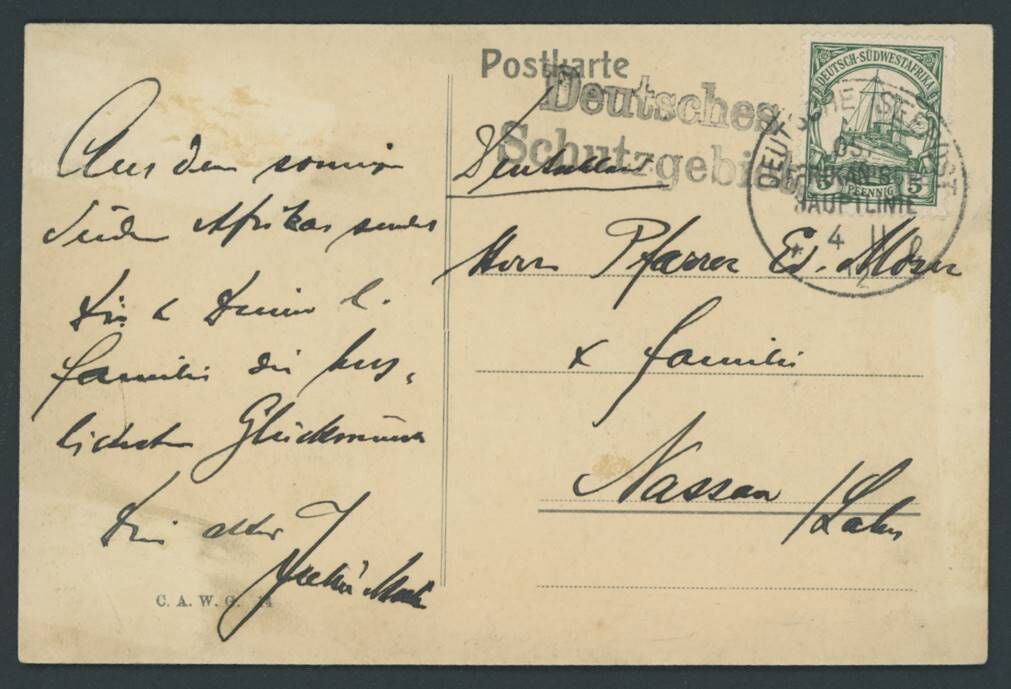 Postkarte
Deutsches
Schutzgebiet
DEUTSCH-SÜDWESTAFRIKA
5 PFENNIG 5
DEUTSCHE SEEPOST
OST-
AFRIKANISCHE
HAUPTLINIE
4 11
Aus dem sonnigen
Süden Afrikas sendet
Dir & Deiner l.
Familie die herz-
lichsten Glückwünsche
Dein alter
Deutschland
Herrn Pfarrer Ed. Moser
& Familie
Nassau
/Lahn
C. A. W. G. 14